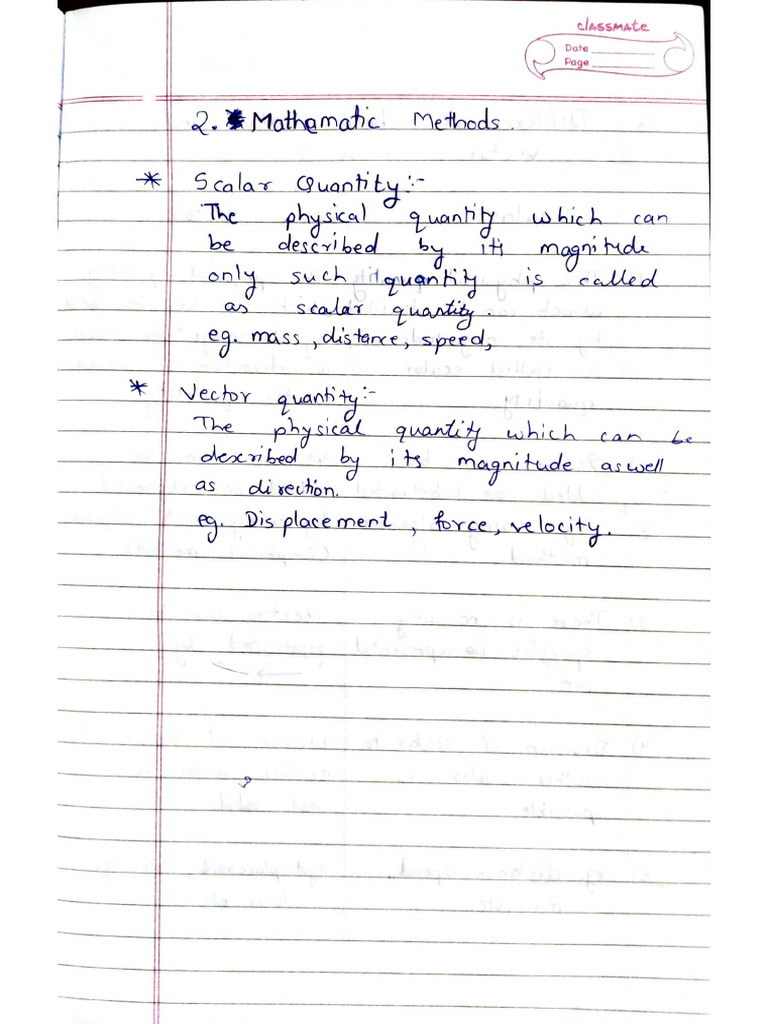 classmate
Date
Page
2. Mathematic Methods.
* Scalar Quantity:-
The physical quantity which can
be described by its magnitude
only such quantity is called
as scalar quantity.
eg. mass, distance, speed,
* Vector quantity:-
The physical quantity which can be
described by its magnitude aswell
as direction.
eg. Displacement, force, velocity.